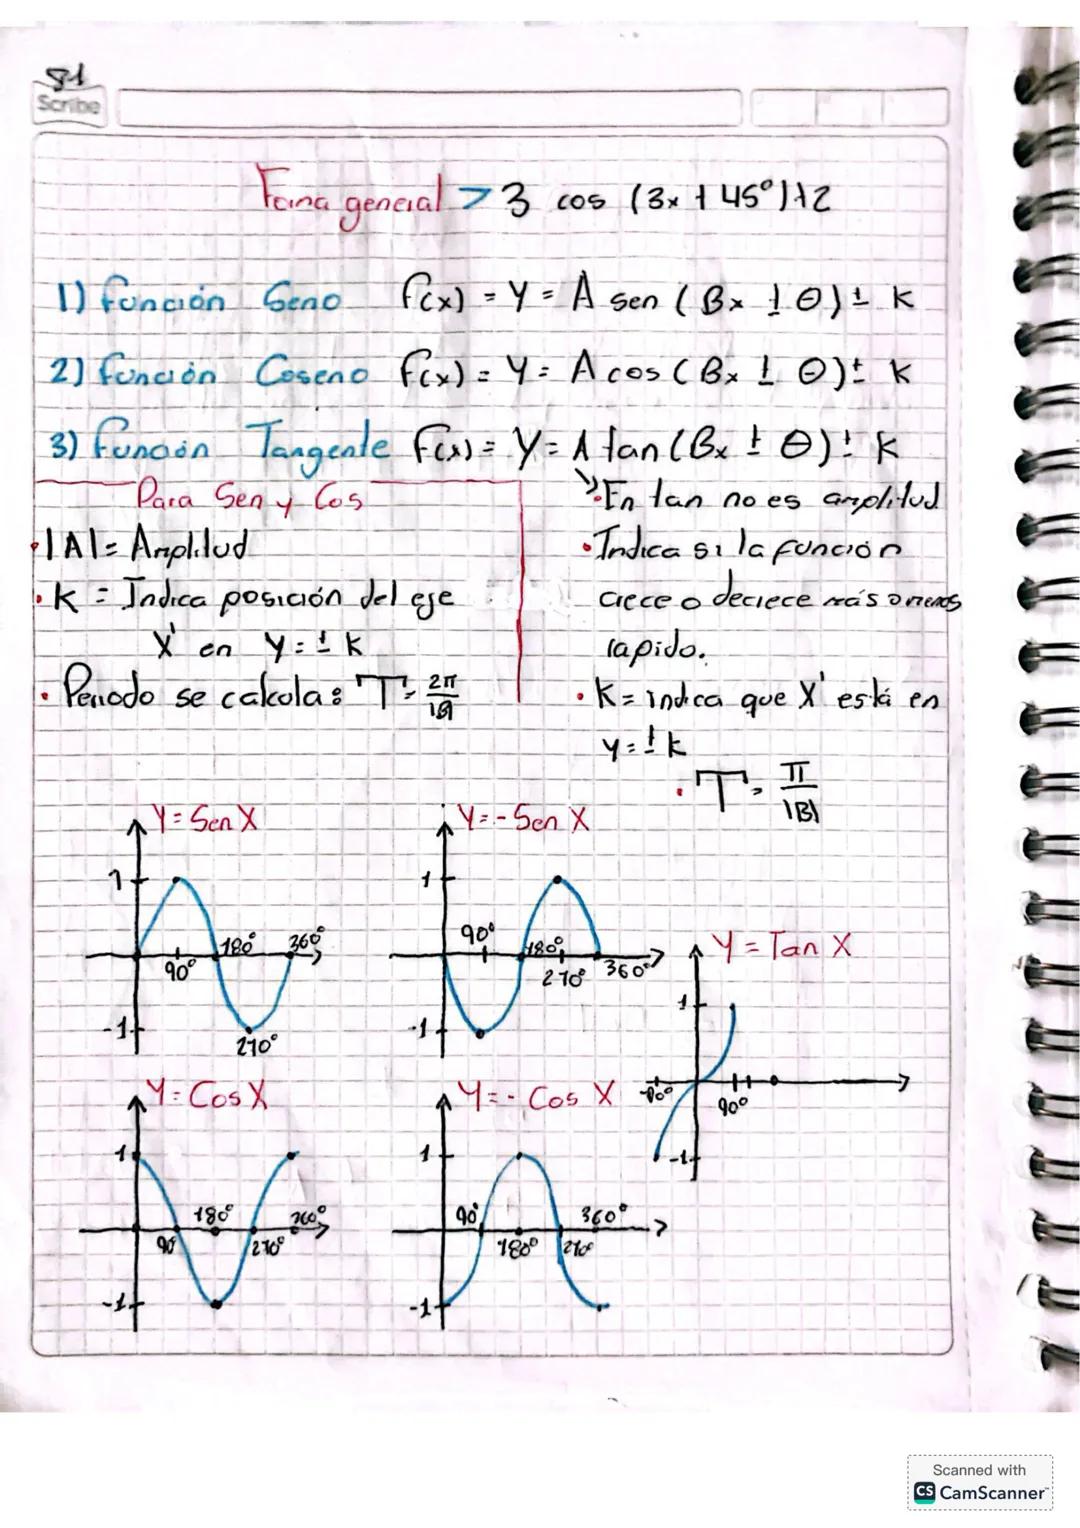 81
Scribe
Forma general > 3 cos (3x + 45°)+2
1) Función Seno f(x) = Y = A sen (Bx ± θ) ± K
2) Función Coseno f(x) = Y = A cos (Bx ± θ) ± K
3) Función Tangente f(x) = Y = A tan (Bx ± θ) ± K
Para Sen y Cos
• |A| = Amplitud
• K = Indica posición del eje
X' en Y = ± K
• Periodo se calcula: T = 2π/|B|
• En tan no es amplitud
• Indica si la función
crece o decrece más o menos
rapido.
• K = indica que X' está en
y = ± k
• T = π/|B|
Y = Sen X
1
90°
180°
360°
-1
270°
Y = - Sen X
1
90°
180°
270°
360°
-1
Y = Tan X
1
-90°
90°
-1
Y = Cos X
1
90°
180°
270°
360°
-1
Y = - Cos X
1
90°
180°
270°
360°
-1
Scanned with
CS CamScanner